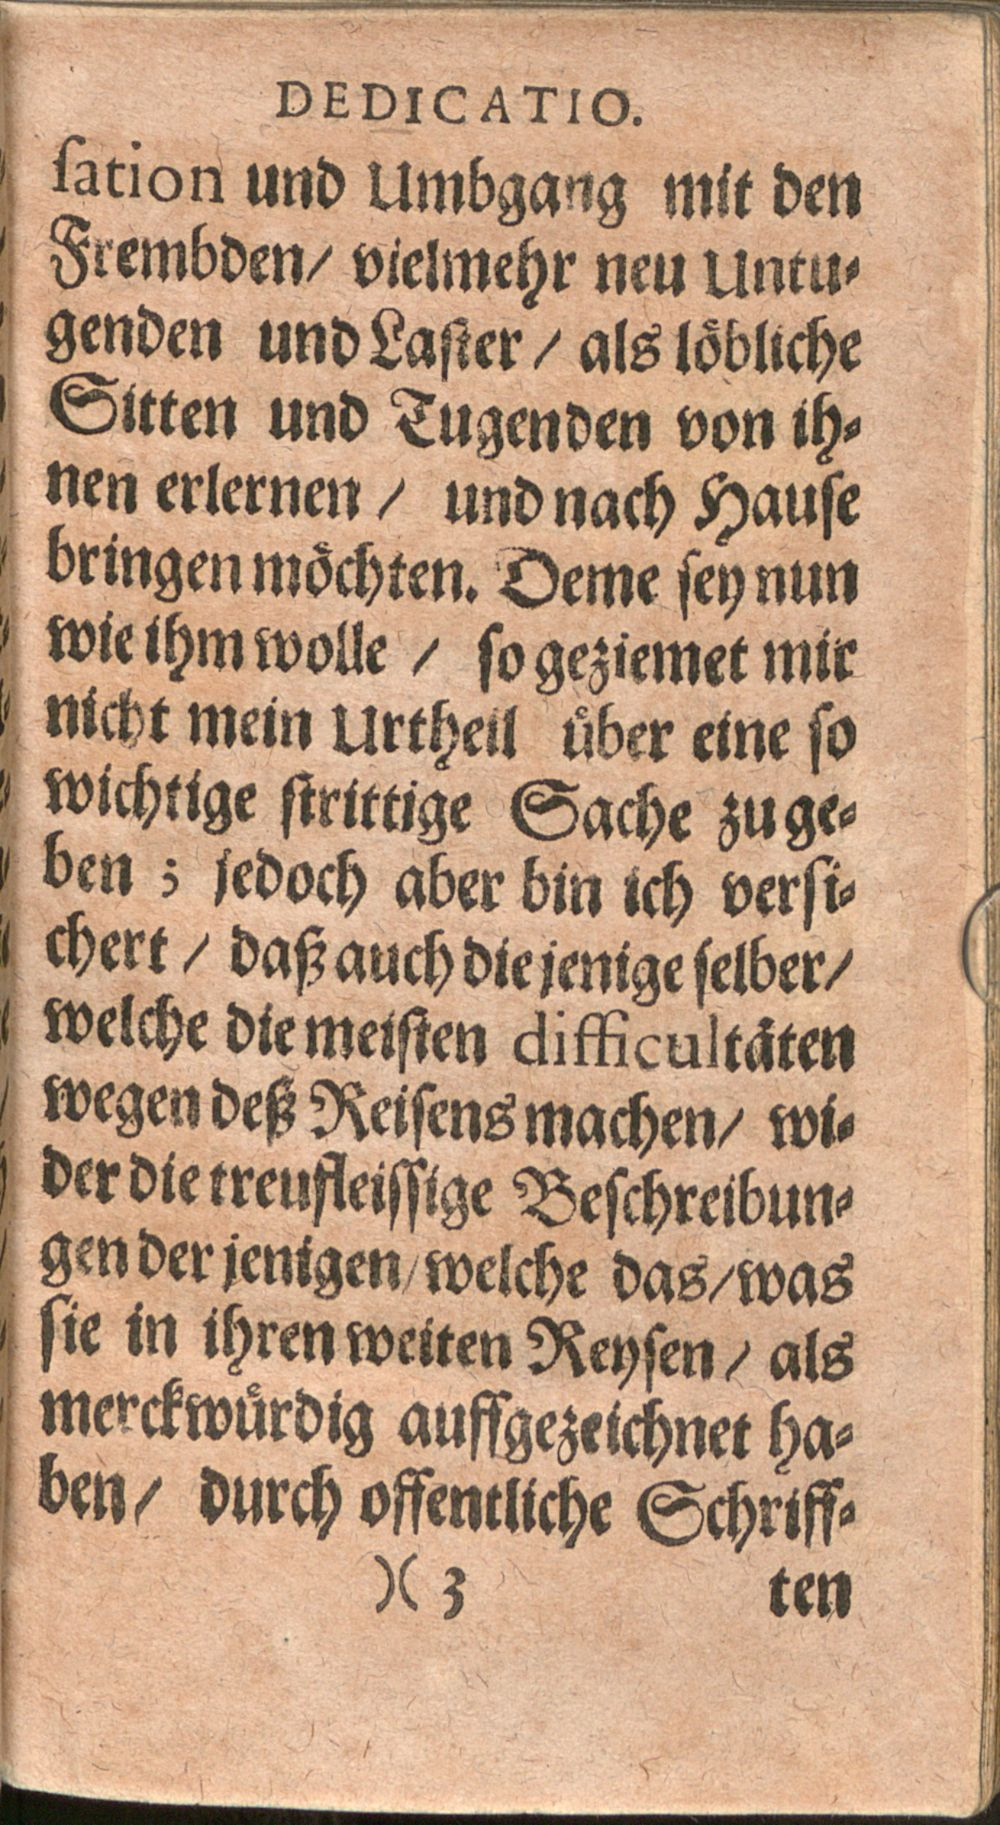 DEDICATIO.
ſation und Umbgang mit den
Frembden/ vielmehr neu Untu-
genden und Laſter / als loͤbliche
Sitten und Tugenden von ih-
nen erlernen / und nach Hauſe
bringen moͤchten. Deme ſey nun
wie ihm wolle / ſo geziemet mir
nicht mein Urtheil uͤber eine ſo
wichtige ſtrittige Sache zu ge-
ben ; jedoch aber bin ich verſi-
chert / daß auch die jenige ſelber/
welche die meiſten difficultaͤten
wegen deß Reiſens machen/ wi-
der die treufleiſſige Beſchreibun-
gen der jenigen/ welche das/ was
ſie in ihren weiten Reyſen / als
merckwuͤrdig auffgezeichnet ha-
ben/ durch offentliche Schriff-
)( 3 ten